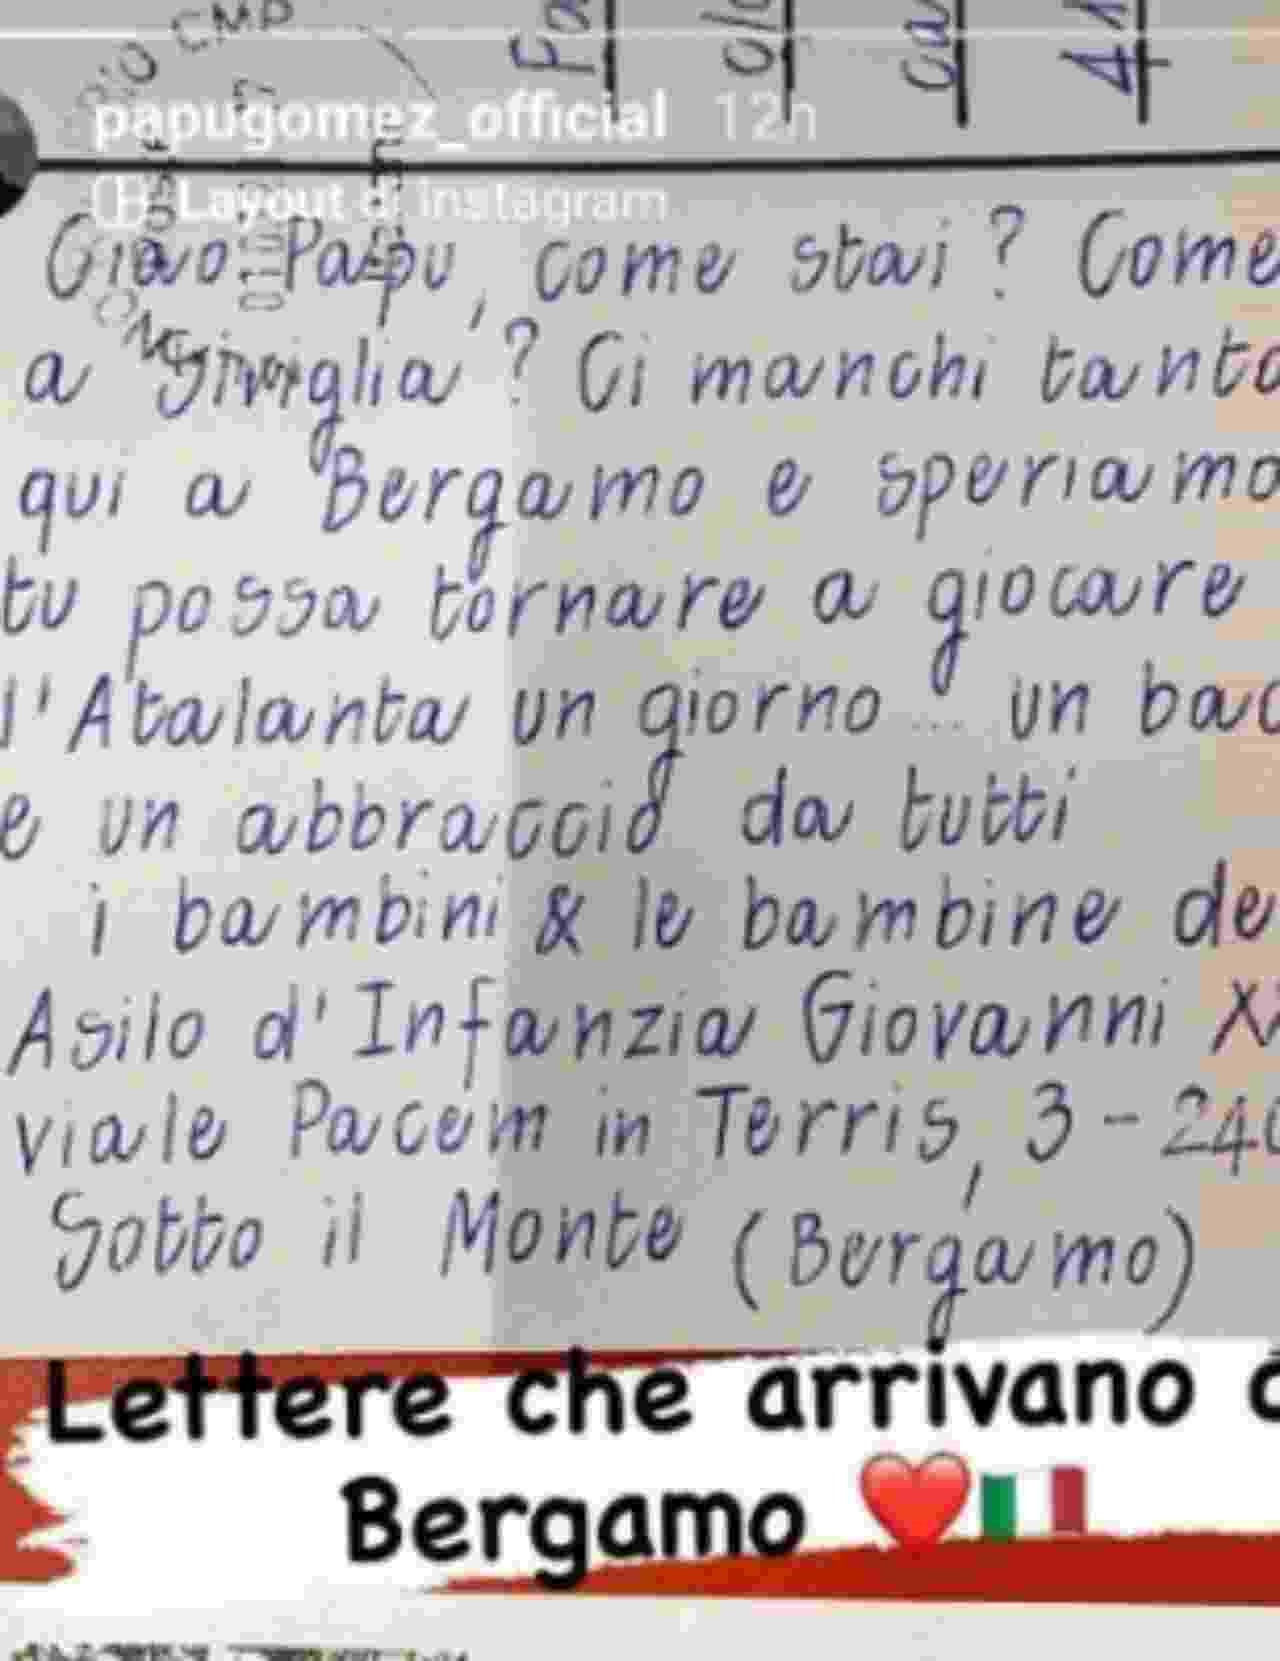 CMP
papugomez_official 12h
Layout di Instagram
Ciao Papu, come stai? Come
a Siviglia? Ci manchi tanto
qui a Bergamo e speriamo
tu possa tornare a giocare
l'Atalanta un giorno... un bac
e un abbraccio da tutti
i bambini & le bambine de
Asilo d'Infanzia Giovanni XX
viale Pacem in Terris, 3 - 240
Sotto il Monte (Bergamo)
Lettere che arrivano
Bergamo ❤️🇮🇹